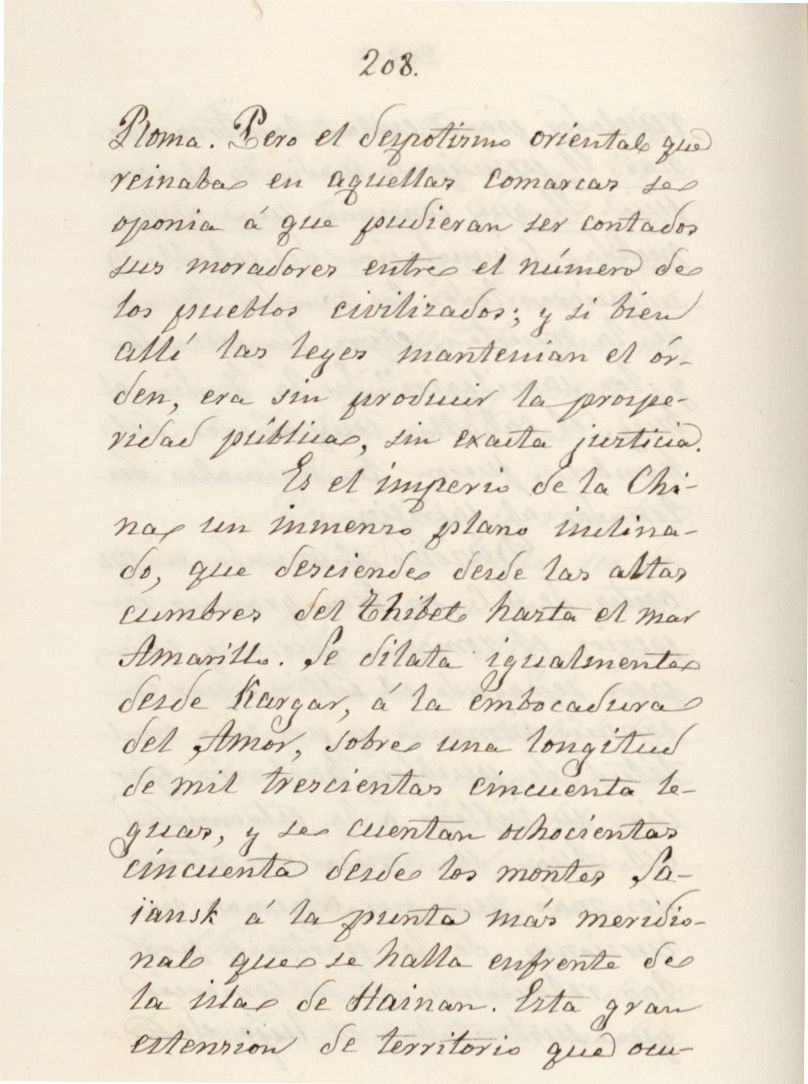 208.
Roma. Pero el despotismo oriental que
reinaba en aquellas comarcas se
oponia á que pudieran ser contados
sus moradores entre el número de
los pueblos civilizados; y si bien
allí las leyes mantenian el ór-
den, era sin producir la prospe-
ridad pública, sin exacta justicia.
Es el imperio de la Chi-
na un inmenso plano inclina-
do, que desciende desde las altas
cumbres del Thibet hasta el mar
Amarillo. Se dilata igualmente
desde Kasgar, á la embocadura
del Amor, sobre una longitud
de mil trescientas cincuenta le-
guas, y se cuentan ochocientas
cincuenta desde los montes Sa-
ïansk á la punta más meridio-
nal que se halla enfrente de
la isla de Hainan. Esta gran
estension de territorio que ocu-